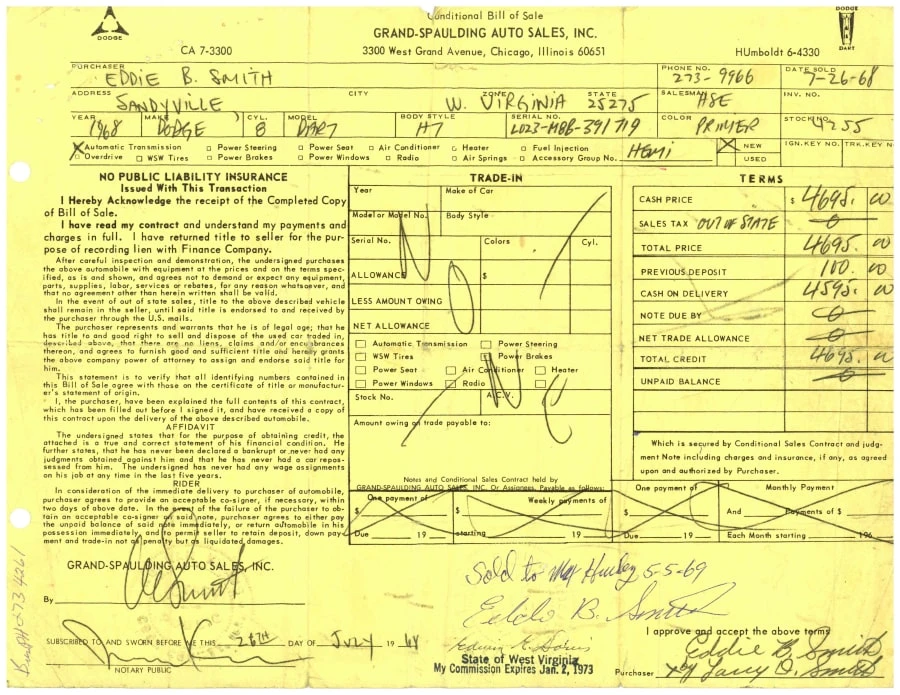 DODGE
Conditional Bill of Sale
DODGE
DART
GRAND-SPAULDING AUTO SALES, INC.
CA 7-3300
3300 West Grand Avenue, Chicago, Illinois 60651
HUmboldt 6-4330
PURCHASER EDDIE B. SMITH
PHONE NO. 273-9966
DATE SOLD 7-26-68
ADDRESS SANDYVILLE
CITY
ZONE
W. VIRGINIA
STATE 25275
SALESMAN HSE
INV. NO.
YEAR 1968
MAKE DODGE
CYL. 8
MODEL DART
BODY STYLE HT
SERIAL NO. LO23-M8B-391719
COLOR PRIMER
STOCK NO. 4255
X Automatic Transmission □ Power Steering □ Power Seat □ Air Conditioner □ Heater □ Fuel Injection X NEW IGN.KEY NO. TRK.KEY N
□ Overdrive □ WSW Tires □ Power Brakes □ Power Windows □ Radio □ Air Springs □ Accessory Group No. HEMI USED
NO PUBLIC LIABILITY INSURANCE
Issued With This Transaction
I Hereby Acknowledge the receipt of the Completed Copy
of Bill of Sale.
I have read my contract and understand my payments and
charges in full. I have returned title to seller for the pur-
pose of recording lien with Finance Company.
After careful inspection and demonstration, the undersigned purchases
the above automobile with equipment at the prices and on the terms spec-
ified, as is and shown, and agrees not to demand or expect any equipment,
parts, supplies, labor, services or rebates, for any reason whatsoever, and
that no agreement other than herein written shall be valid.
In the event of out of state sales, title to the above described vehicle
shall remain in the seller, until said title is endorsed to and received by
the purchaser through the U.S. mails.
The purchaser represents and warrants that he is of legal age; that he
has title to and good right to sell and dispose of the used car traded in,
described above, that there are no liens, claims and/or encumbrances
thereon, and agrees to furnish good and sufficient title and hereby grants
the above company power of attorney to assign and endorse said title for
him.
This statement is to verify that all identifying numbers contained in
this Bill of Sale agree with those on the certificate of title or manufactur-
er's statement of origin.
I, the purchaser, have been explained the full contents of this contract,
which has been filled out before I signed it, and have received a copy of
this contract upon the delivery of the above described automobile.
AFFIDAVIT
The undersigned states that for the purpose of obtaining credit, the
attached is a true and correct statement of his financial condition. He
further states, that he has never been declared a bankrupt or never had any
judgments obtained against him and that he has never had a car repos-
sessed from him. The undersigned has never had any wage assignments
on his job at any time in the last five years.
RIDER
In consideration of the immediate delivery to purchaser of automobile,
purchaser agrees to provide an acceptable co-signer, if necessary, within
two days of above date. In the event of the failure of the purchaser to ob-
tain an acceptable co-signer on said note, purchaser agrees to either pay
the unpaid balance of said note immediately, or return automobile in his
possession immediately, and to permit seller to retain deposit, down pay-
ment and trade-in not as penalty but as liquidated damages.
TRADE-IN
Year
Make of Car
Model or Model No.
Body Style
Serial No.
Colors
Cyl.
ALLOWANCE
$
LESS AMOUNT OWING
NET ALLOWANCE
□ Automatic Transmission □ Power Steering
□ WSW Tires □ Power Brakes
□ Power Seat □ Air Conditioner □ Heater
□ Power Windows □ Radio □
Stock No.
A.C.V.
Amount owing on trade payable to:
Notes and Conditional Sales Contract held by
GRAND-SPAULDING AUTO SALES, INC. Or Assignees, Payable as follows:
TERMS
CASH PRICE $ 4695. 00
SALES TAX OUT OF STATE 0
TOTAL PRICE 4695. 00
PREVIOUS DEPOSIT 100. 00
CASH ON DELIVERY 4595. 00
NOTE DUE BY 0
NET TRADE ALLOWANCE 0
TOTAL CREDIT 4695. 00
UNPAID BALANCE 0
Which is secured by Conditional Sales Contract and judg-
ment Note including charges and insurance, if any, as agreed
upon and authorized by Purchaser.
One payment of
$
Due 19
Weekly payments of
$ $
starting 19
One payment of
$
Due 19
Monthly Payment
And Payments of $
Each Month starting 196
GRAND-SPAULDING AUTO SALES, INC.
By
Sold to Hurley 5-5-69
Eddie B. Smith
SUBSCRIBED TO AND SWORN BEFORE ME THIS 26TH DAY OF JULY 19 68
NOTARY PUBLIC
State of West Virginia
My Commission Expires Jan. 2, 1973
I approve and accept the above terms
Eddie B. Smith
Purchaser X By Larry D. Smith